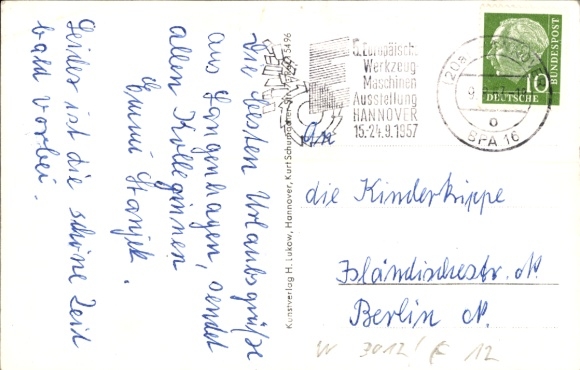 Die besten Urlaubsgrüße
aus Langenhagen, sendet
allen Kolleginnen
Emmi Stanjek.
Leider ist die schöne Zeit
bald vorbei.
Kunstverlag H. Lukow, Hannover, Kurt Schumacher
5496
5. Europäische
Werkzeug
Maschinen
Ausstellung
HANNOVER
15.-24.9.1957
(20a)
BPA 16
DEUTSCHE
BUNDESPOST
10
An
die Kinderkrippe
Isländischestr. N.
Berlin N.